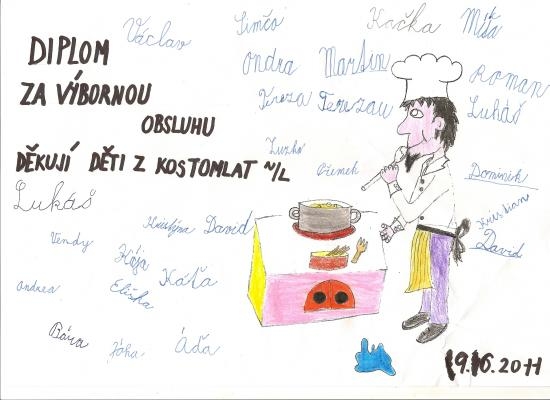 DIPLOM
ZA VÝBORNOU
OBSLUHU
DĚKUJÍ DĚTI Z KOSTOMLAT N/L
Václav
Šimčo
Kačka
Míša
Ondra
Martin
Roman
Tereza
Lukáš
Zuzka
Dominik
Kristian
David
Lukáš
Kristýna
David
Vendy
Kája
Káťa
Andrea
Eliška
Bára
Jóha
Áďa
19.6.2011